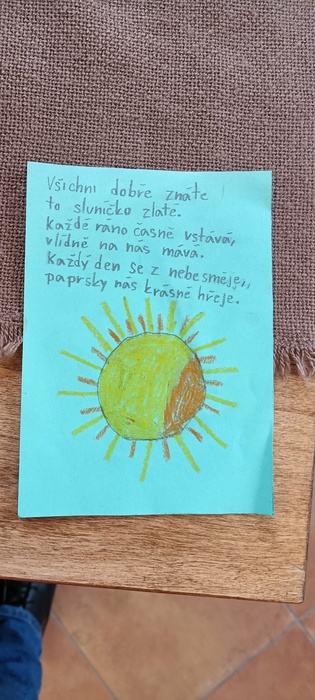 Všichni dobře znáte
to sluníčko zlaté.
Každé ráno časně vstává,
vlídně na nás mává.
Každý den se z nebe směje,
paprsky nás krásně hřeje.